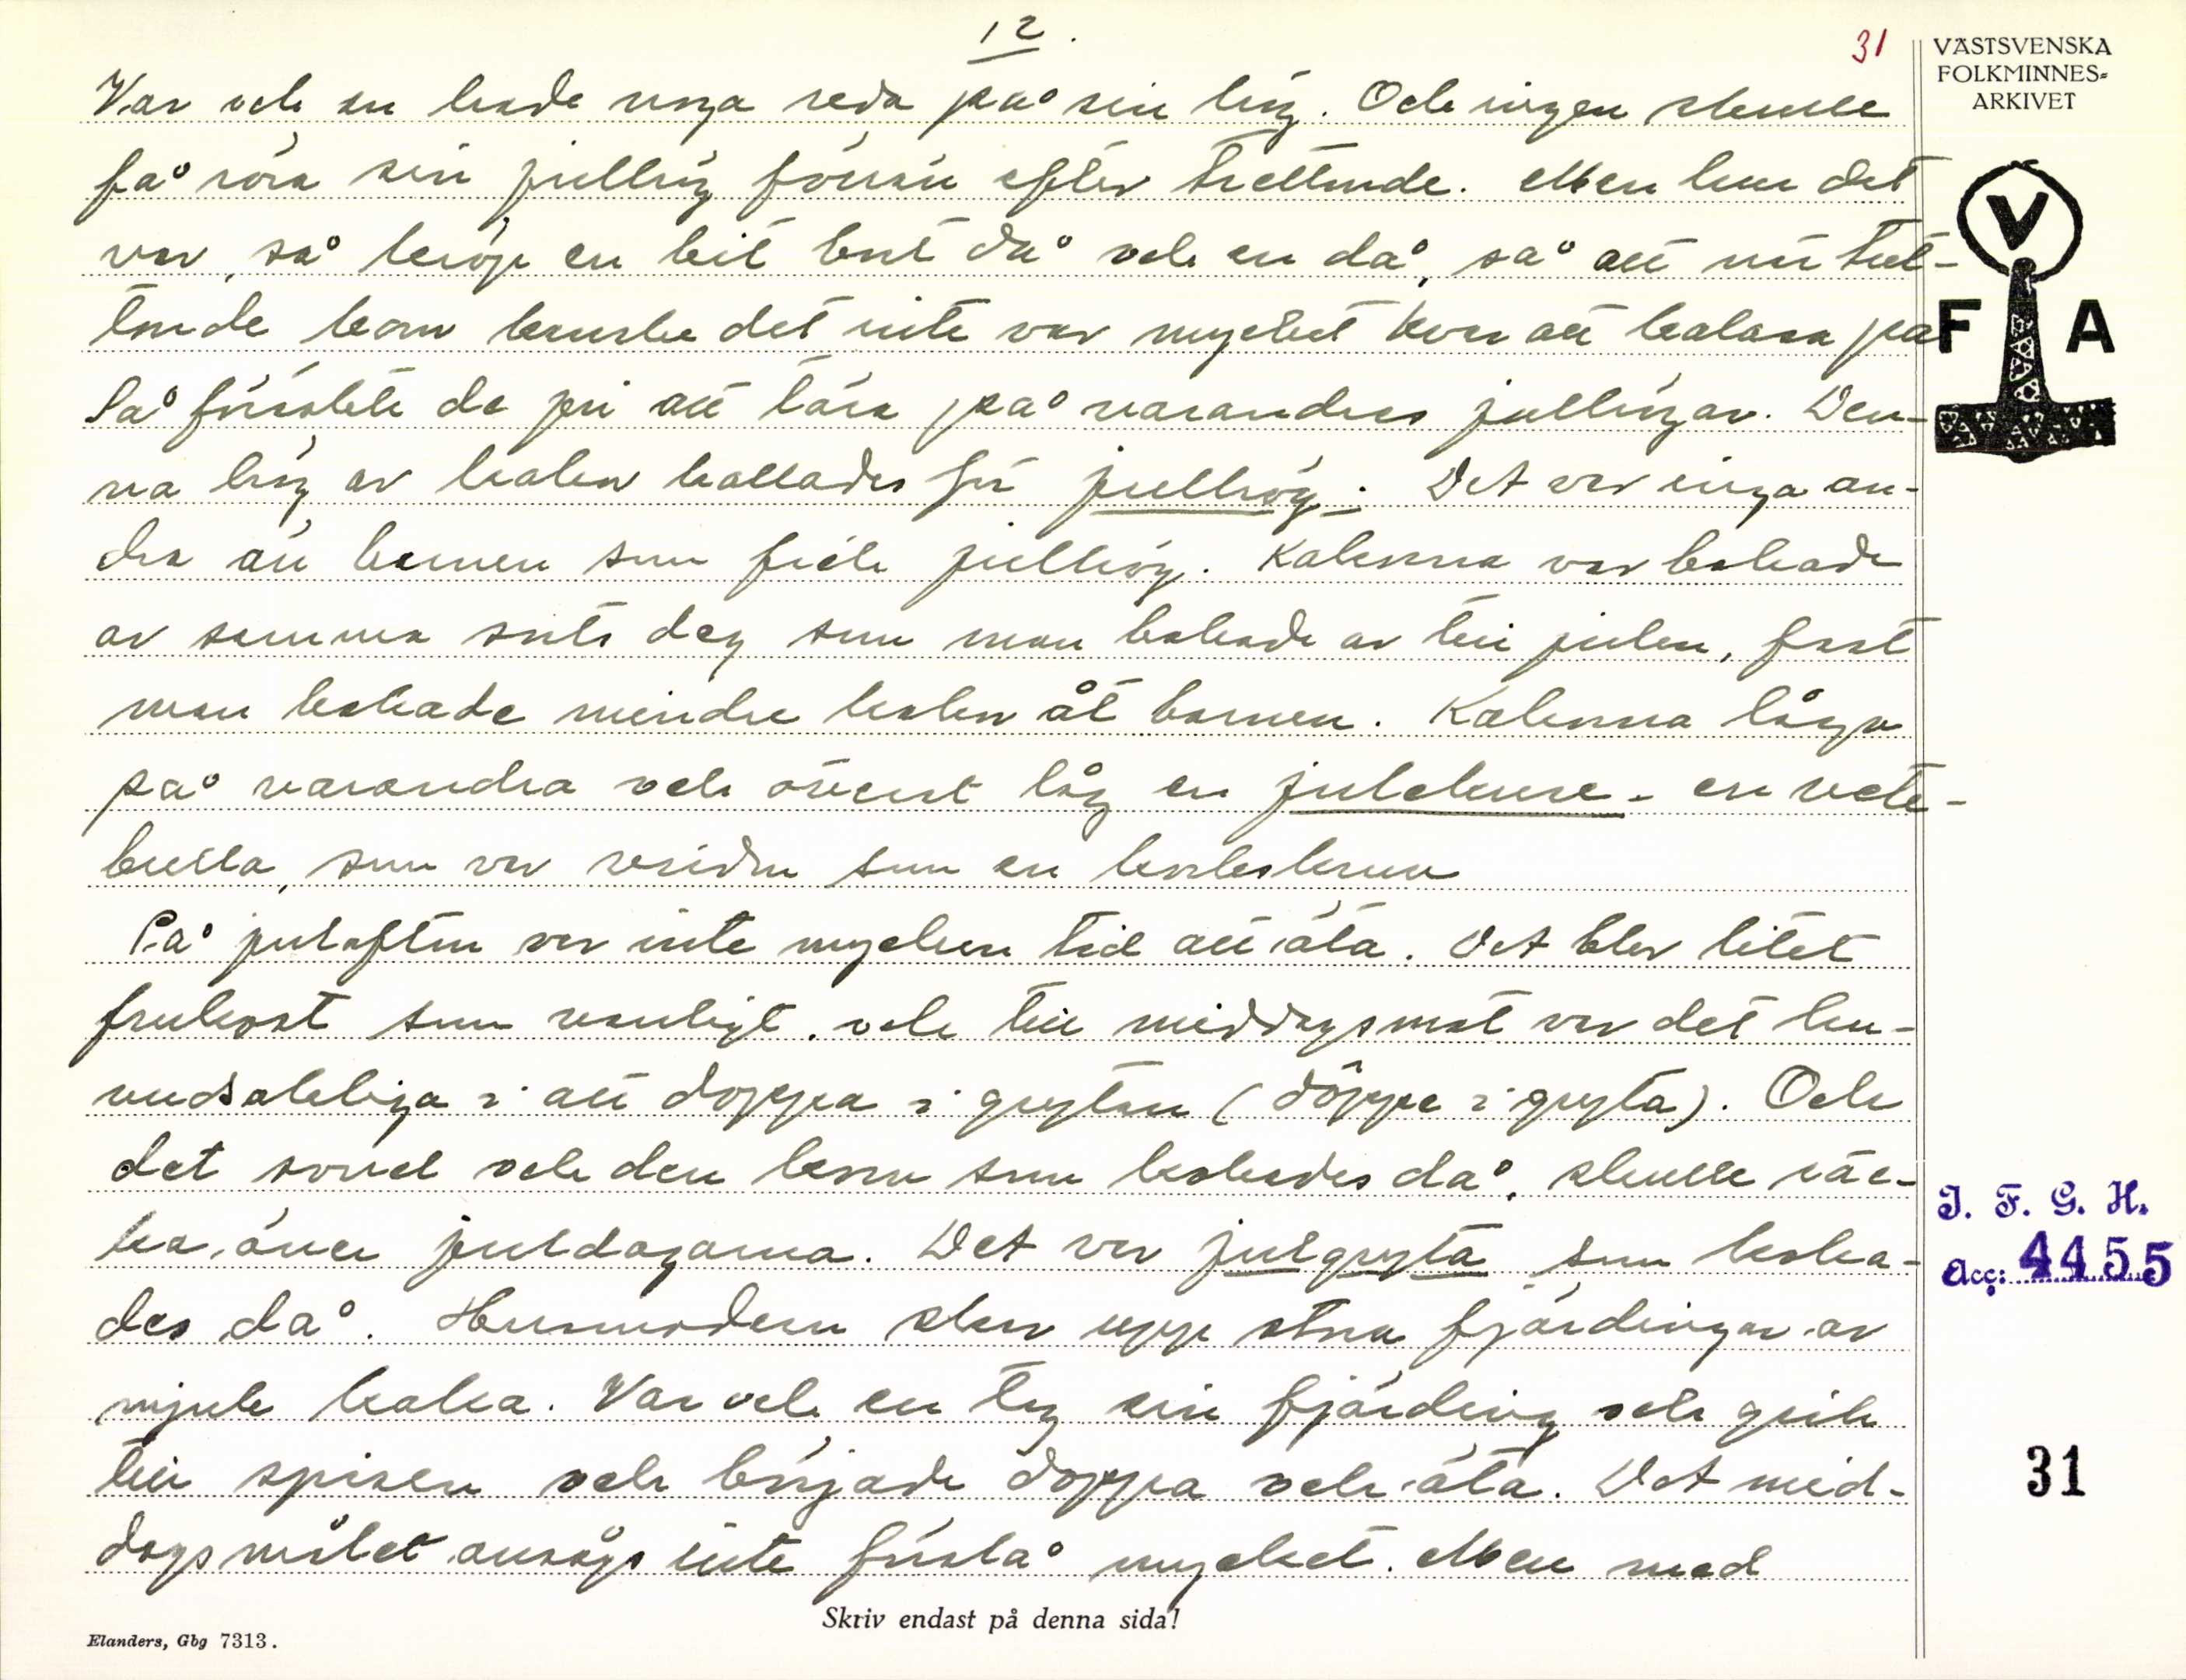 12.
31
VÄSTSVENSKA
FOLKMINNES-
ARKIVET
Var och en hade noga reda på sin hög. Och ingen skulle
få röra sin julhög förrän efter trettende. Men hur det
var, så kröp en bit bort då och en då, så att när tret-
tende kom kanske det inte var mycket kvar att kalasa på
Så försökte de ju att tära på varandras julhögar. Den-
na hög av kakor kallades för julhög. Det var inga an-
dra än barnen som fick julhög. Kakorna var bakade
av samma sorts deg som man bakade av till julen, fast
man bakade mindre kakor åt barnen. Kakorna låga
på varandra och överst låg en julakuse - en vete-
bulla, som var vriden som en
På julafton var inte mycken tid att äta. Det blev litet
frukost som vanligt, och till middagsmat var det hu-
vudsakliga i att doppa i grytan (döppe i gryta). Och
det sovel och den korv som kokades då, skulle räc-
ka över juldagarna. Det var julgryta som koka-
des då. Husmodern skar upp stora fjärdingar av
mjuk kaka. Var och en tog sin fjärding och gick
till spisen och började doppa och äta. Det mid-
dagsmålet ansågs inte förslå mycket. Men med
V
F A
I. F. G. H.
Acc: 4455
31
Skriv endast på denna sida!
Elanders, Gbg 7313.